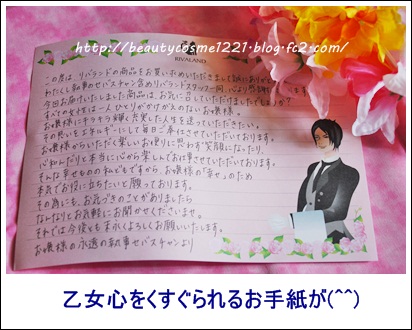 RIVALAND
http://beautycosme1221.blog.fc2.com/
この度は、リバランドの商品をお買い求めいただきまして誠にありがとう
わたくし執事のセバスチャン含めリバランドスタッフ一同、心より感謝
今回お届けいたしました商品は、お気に召していただけましたでしょうか？
すべての女性は一人ひとりがかけがえのないお嬢様。
お嬢様にキラキラ輝く充実した人生を送っていただきたい。
その思いをエネルギーにして毎日ご奉仕させていただいております。
お嬢様からいただく楽しいお便りに思わず笑顔になったり、
心和んだりと本当に心から楽しんでお仕事させていただいております。
そんな幸せものの私どもですから、お嬢様の「幸せ」のため
本気でお役に立ちたいと願っております。
その為にも、お気づきのことがありましたら
なんなりとお気軽にお聞かせくださいませ。
それでは今後とも末永くよろしくお願いいたします。
お嬢様の永遠の執事セバスチャンより
乙女心をくすぐられるお手紙が(^^)